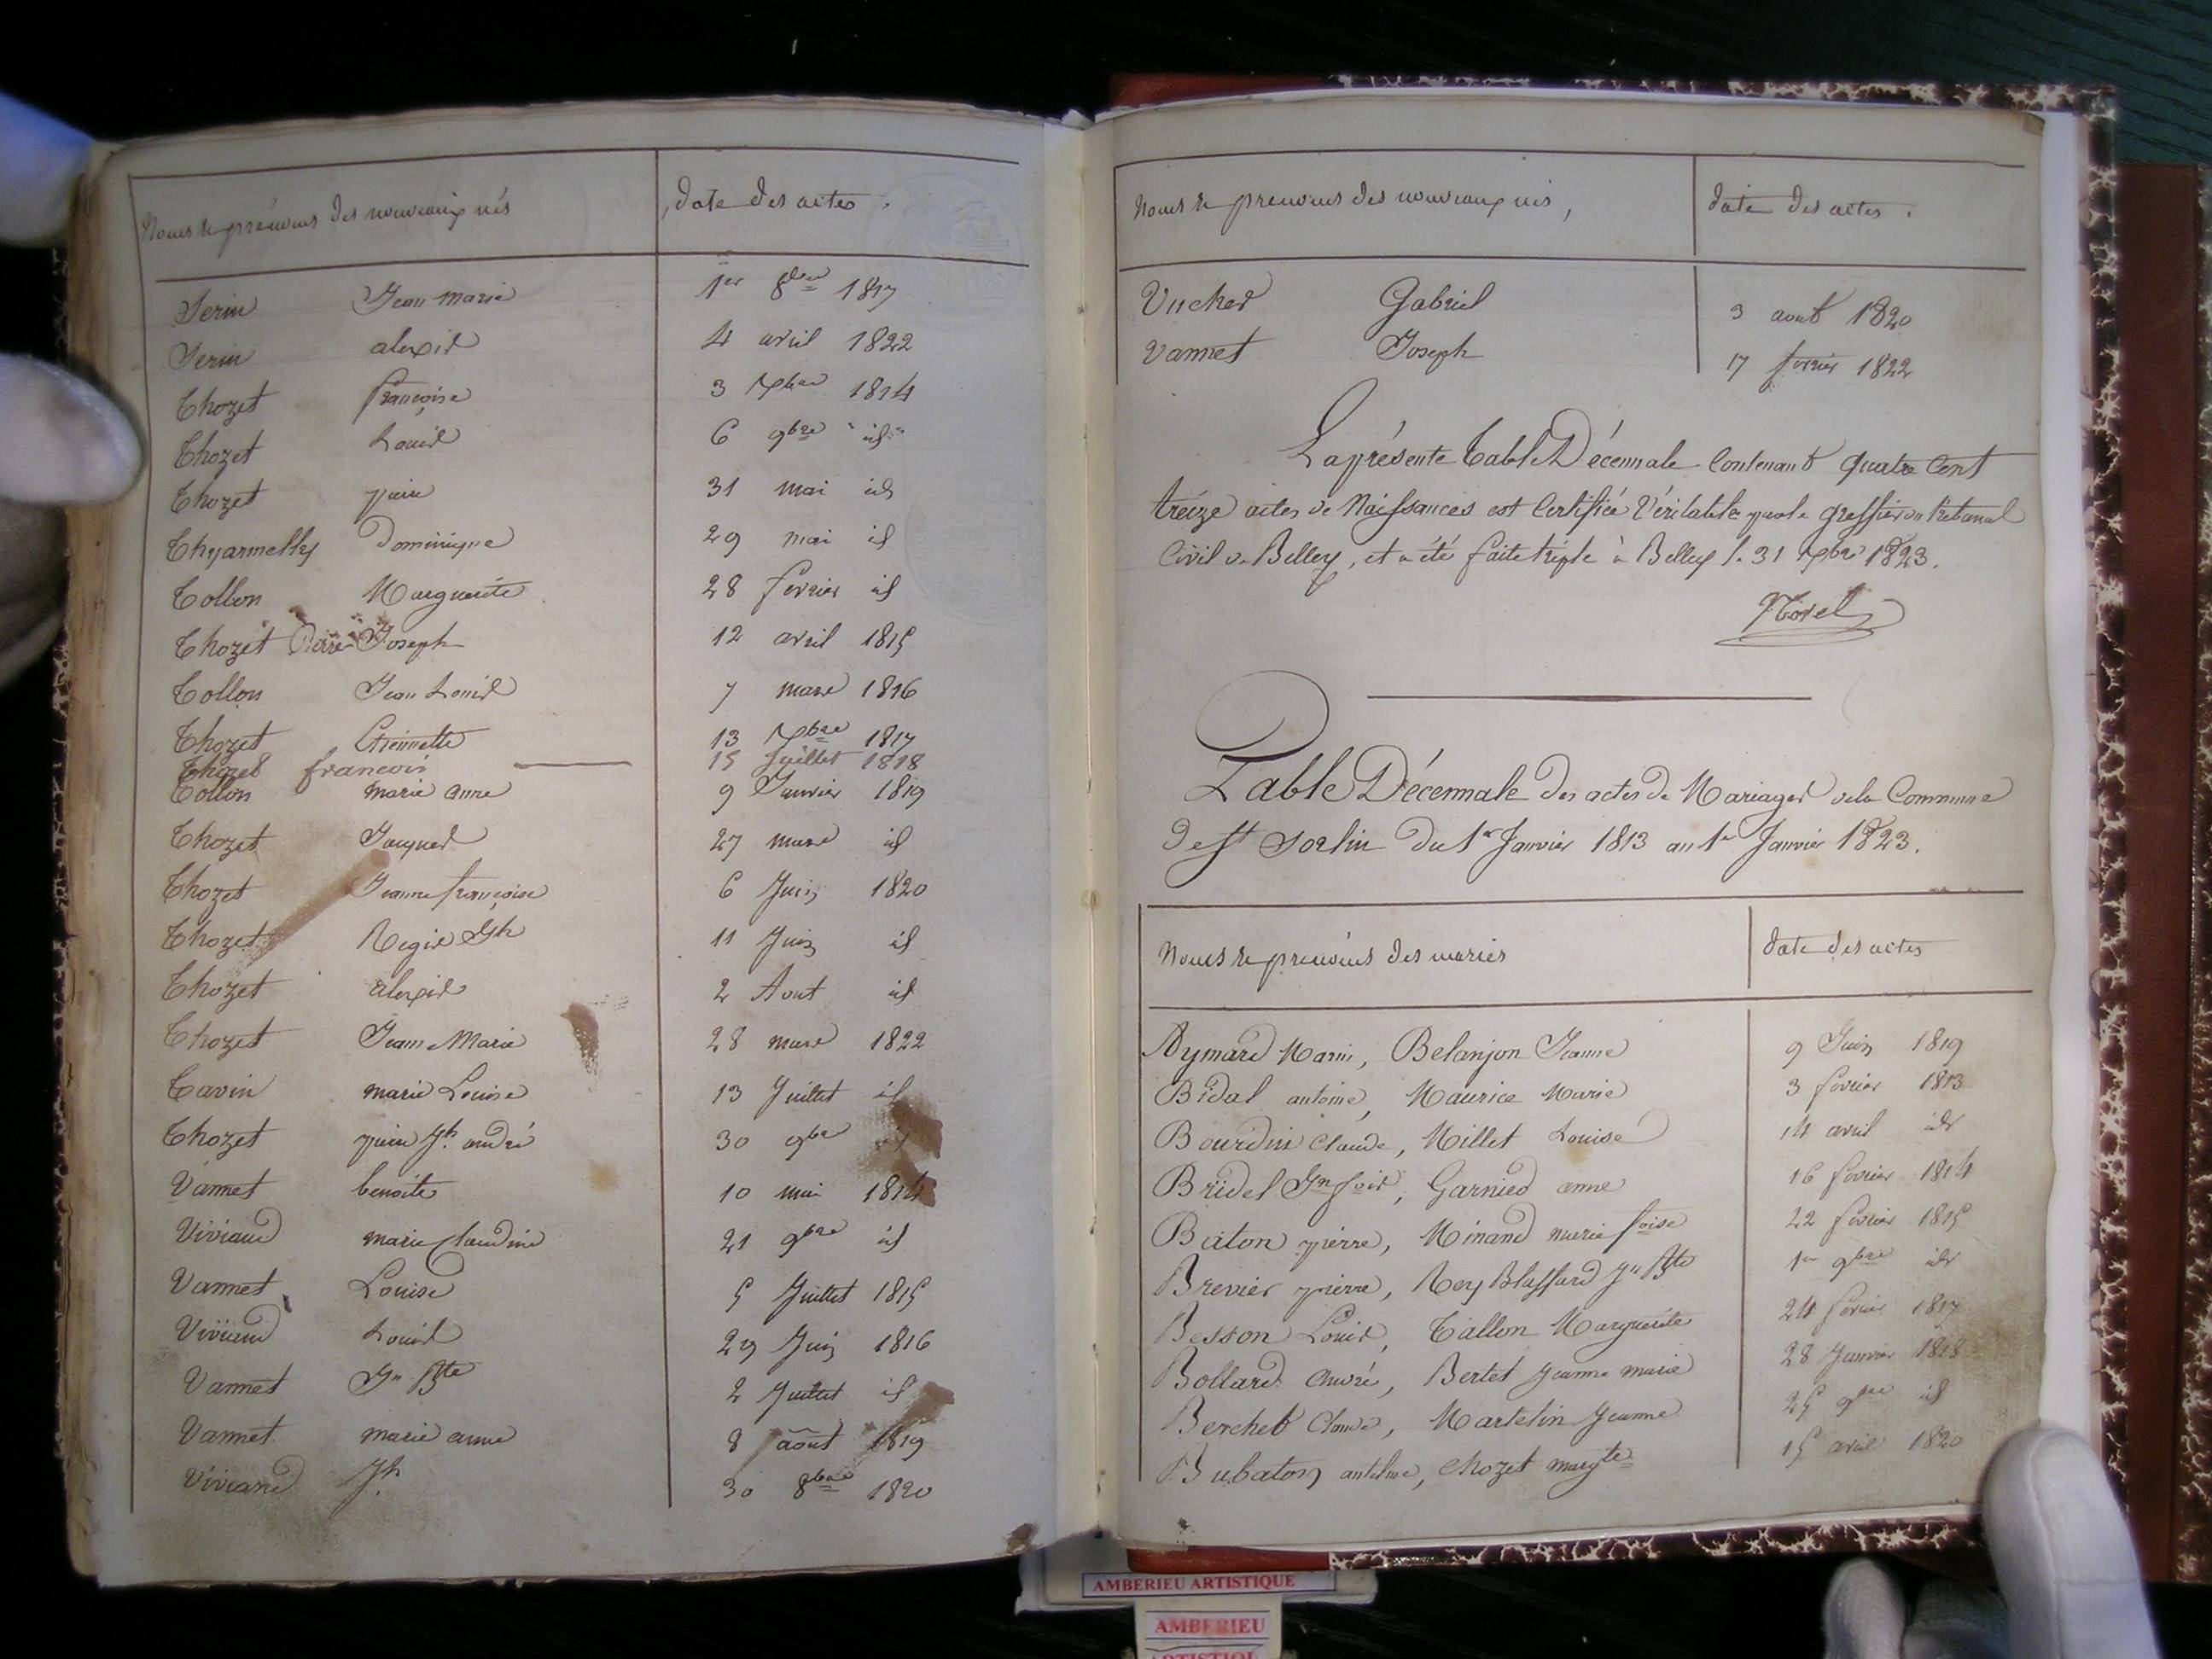 Noms et prénoms des nouveaux nés date des actes.
Serin Jean marie 1er 8bre 1817
Serin alexis 4 avril 1822
Thozet françoise 3 7bre 1814
Thozet Louis 6 9bre id
Thozet pierre 31 mai id
Thyarmelly Dominique 29 mai id
Tollon Marguerite 28 fevrier id
Thozet Pierre Joseph 12 avril 1815
Tollon Jean Louis 7 mars 1816
Thozet Etiennette 13 7bre 1817
Thozet francois 15 Juillet 1818
Tollon marie anne 9 Janvier 1819
Thozet Jacques 27 mars id
Thozet Jeanne françoise 6 Juin 1820
Thozet Regis Jh 11 Juin id
Thozet alexis 2 Aout id
Thozet Jean Marie 28 mars 1822
Tavin marie Louise 13 Juillet id
Thozet pierre Jh. andré 30 9bre id
Vannet benoite 10 mai 1814
Viviand marie Claudine 21 9bre id
Vannet Louise 5 Juillet 1815
Viviand Louis 29 Juin 1816
Vannet Jn Bte 2 Juillet id
Vannet marie anne 8 août 1819
Viviand Jh. 30 8bre 1820
Noms et prenoms des nouveaux nés, date des actes.
Vucher Gabriel 3 aout 1820
Vannet Joseph 17 fevrier 1822
La présente Table Décennale contenant quatre cent
treize actes de Naissances est certifiée véritable par le greffier du tribunal
Civil de Belley, et a été faite triple à Belley le 31 Xbre 1823.
Table Décennale des actes de Mariages de la Commune
De St Sorlin du 1er Janvier 1813 au 1er Janvier 1823.
Noms et prenoms des mariés date des actes
Aymard Marin, Belanjon Jeanne 9 Juin 1819
Bidal antoine, Maurice Marie 3 fevrier 1813
Bourdin Claude, Millet Louise 14 avril id
Bridel Jn fois, Garnier anne 16 fevrier 1814
Baton pierre, Minand marie foise 22 fevrier 1815
Brevier pierre, Rey Blassard Jn Bte 1er 9bre id
Besson Louis, Tallon Marguerite 24 fevrier 1817
Bollard André, Bertet Jeanne marie 28 Janvier 1818
Berchet Claude, Martelin Jeanne 25 9bre id
Bubaton anthelme, Chozet margte 15 avril 1820
AMBERIEU ARTISTIQUE
AMBERIEU
ARTISTIQUE